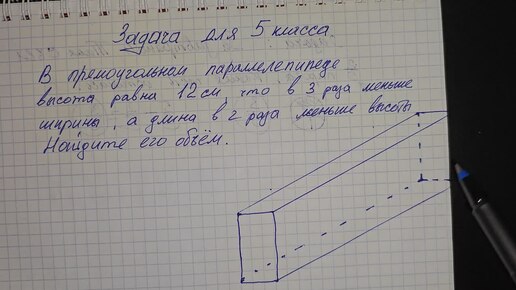 Задача для 5 класса.
В прямоугольном параллелепипеде
высота равна 12 см, что в 3 раза меньше
ширины, а длина в 2 раза меньше высоты
Найдите его объём.